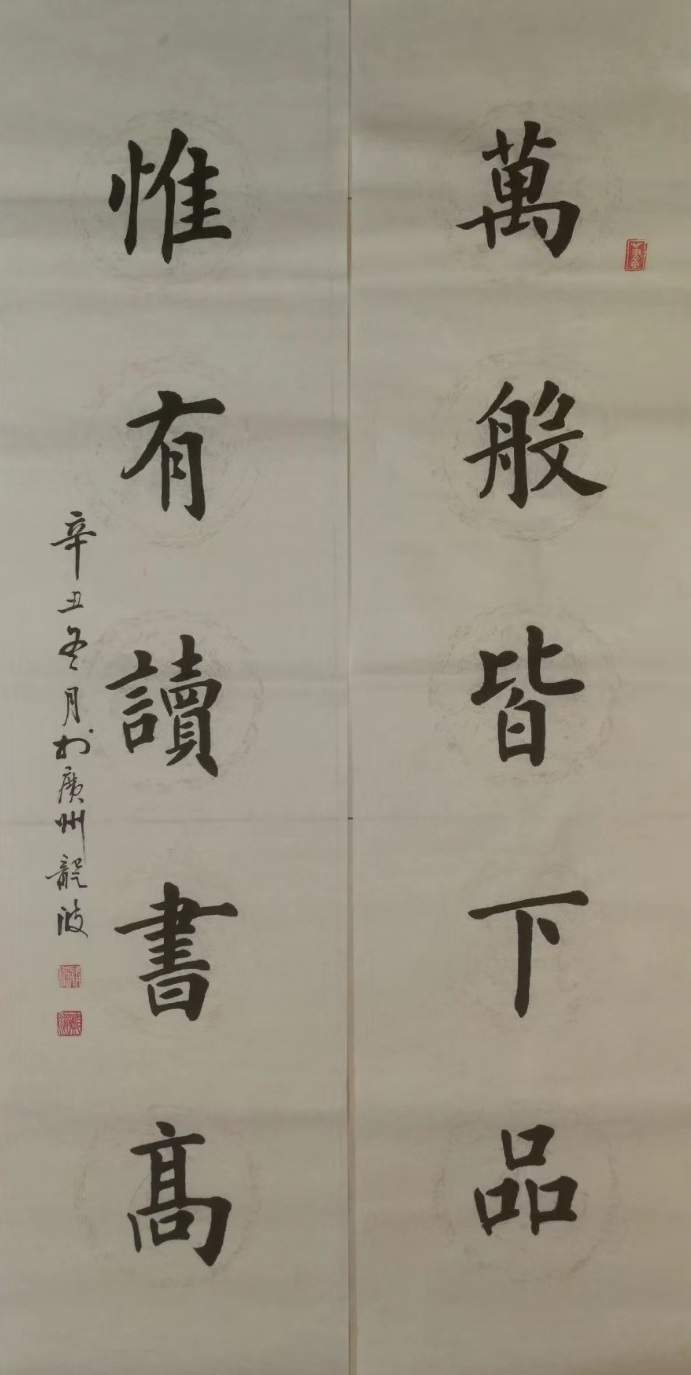 萬般皆下品
惟有讀書高
辛丑冬月於廣州龍波